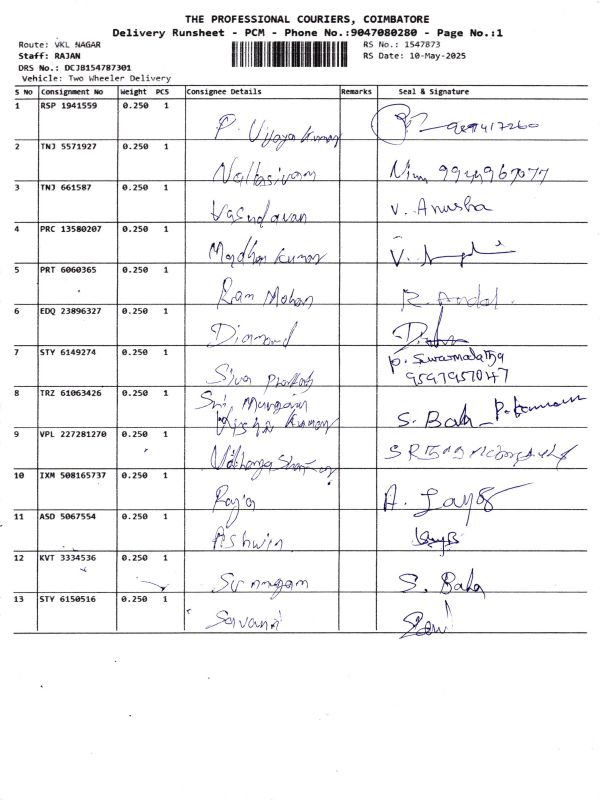 THE PROFESSIONAL COURIERS, COIMBATORE
Delivery Runsheet - PCM - Phone No.:9047080280 - Page No.:1
Route: VKL NAGAR RS No.: 1547873
Staff: RAJAN RS Date: 10-May-2025
DRS No.: DCJB154787301
Vehicle: Two Wheeler Delivery
S NO Consignment No Weight PCS Consignee Details Remarks Seal & Signature
1 RSP 1941559 0.250 1
P. Vijaya Kumar
2 TNJ 5571927 0.250 1
Nallasivam
3 TNJ 661587 0.250 1
Vasudavan V. Anusha
4 PRC 13580207 0.250 1
Madhan Kumar V.
5 PRT 6060365 0.250 1
Ram Mohan R. Andal.
6 EDQ 23896327 0.250 1
Diamond
7 STY 6149274 0.250 1 P. Swarnalatha
Siva 9597957047
8 TRZ 61063426 0.250 1
Sri Murugan
Kumar S. Bala
9 VPL 227281270 0.250 1
10 IXM 508165737 0.250 1
Raja A.
11 ASD 5067554 0.250 1
Ashwin
12 KVT 3334536 0.250 1
S. Bala
13 STY 6150516 0.250 1